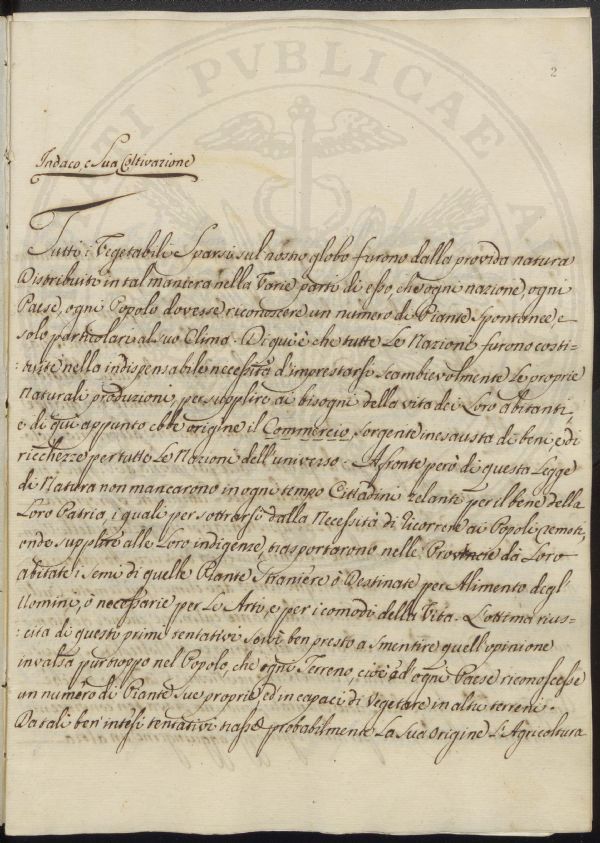 2
PVBLICAE
Indaco, e Sua Coltivazione
Tutti i Vegetabili Sparsi sul nostro globo furono dalla provida natura
Distribuiti in tal maniera nelle Varie parti di esso che ogni nazione, ogni
Paese, ogni Popolo dovesse riconoscere un numero di Piante Spontanee e
solo particolari al suo Clima. Di qui è che tutte Le Nazione furono costi-
:tuite nella indispensabile necessità d'imprestarsi Scambievolmente Le proprie
Naturali produzioni, per supplire ai bisogni della vita dei Loro abitanti,
e di qui appunto ebbe origine il Commercio, sorgente inesausta di beni e di
ricchezze per tutte Le Nazioni dell'universo. A fronte però di questa Legge
di Natura non mancarono in ogni tempo Cittadini zelanti per il bene della
Loro Patria, i quali per sottrarsi dalla Necessità di ricorrere ai Popoli remoti,
onde supplire alle Loro indigenze, trasportarono nelle Provincie da Loro
abitate i Semi di quelle Piante Straniere ò Destinate per Alimento degl'
Uomini, ò necessarie per Le Arti, e per i comodi della Vita. L'ottima rius=
:cita di questi primi tentativi servì ben presto a smentire quell'opinione
invalsa purtroppo nel Popolo, che ogni Terreno, cioè ad ogni Paese riconoscesse
un numero di Piante Sue proprie ed incapaci di Vegetare in altri terreni.
Da tali ben intesi tentativi trasse probabilmente La Sua origine L'Agricoltura